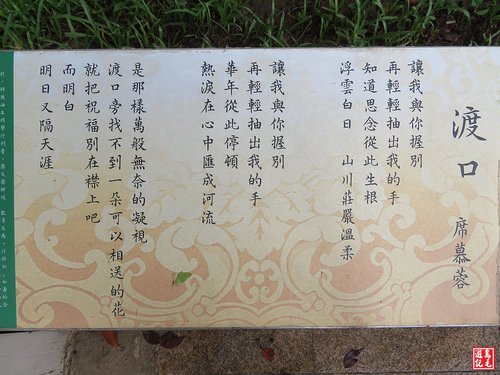 渡口
席慕蓉
讓我與你握別
再輕輕抽出我的手
知道思念從此生根
浮雲白日 山川莊嚴溫柔
讓我與你握別
再輕輕抽出我的手
華年從此停頓
熱淚在心中匯成河流
是那樣萬般無奈的凝視
渡口旁找不到一朵可以相送的花
就把祝福別在襟上吧
而明白
明日又隔天涯